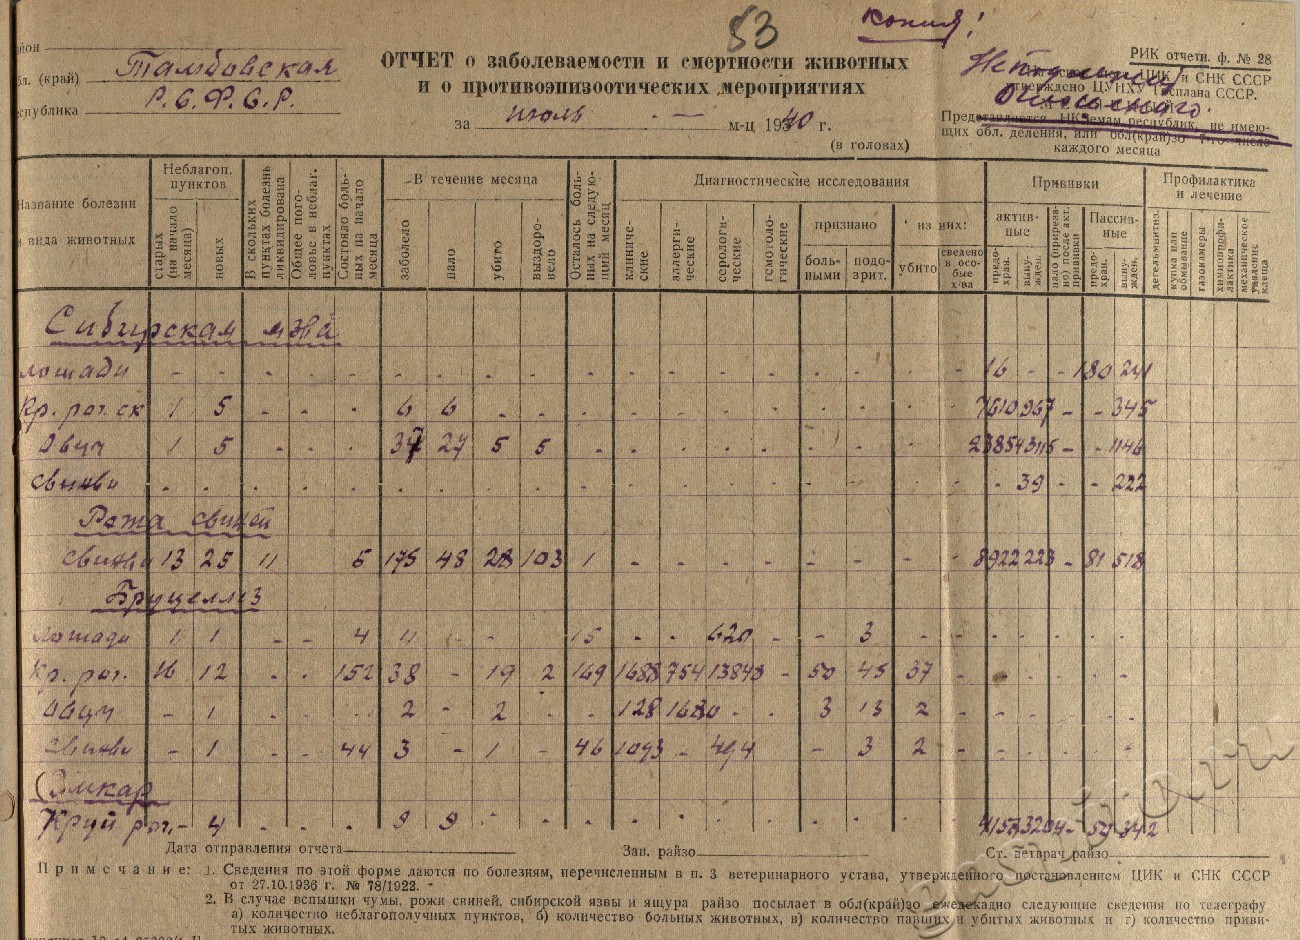 53 копия!
район
обл. (край) Тамбовская
Республика Р.С.Ф.С.Р.
ОТЧЕТ о заболеваемости и смертности животных
и о противоэпизоотических мероприятиях
за июль м-ц 1940 г.
(в головах)
РИК отчетн. ф. № 28
ЦИК и СНК СССР
утверждено ЦУНХУ Госплана СССР.
Представляется НКЗемам республик, не имею-
щих обл. деления, или обл(край)зо 7-го числа
каждого месяца
Название болезни
и вида животных
Неблагоп. пунктов
старых (на начало месяца)
новых
В скольких пунктах болезнь ликвидирована
Общее пого-ловье в неблаг. пунктах
Состояло боль-ных на начало месяца
В течение месяца
заболело
пало
убито
выздоро-вело
Осталось боль-ных на следую-щий месяц
Диагностические исследования
клиниче-ские
аллерги-ческие
серологи-ческие
гемотоло-гические
признано
боль-ными
подо-зрит.
из них:
убито
сведено в осо-бые х-ва
Прививки
актив-ные
предо-хран.
вынуж-ден.
пало (прирезано) после акт. прививки
Пассив-ные
предо-хран.
вынуж-ден.
Профилактика и лечение
купка или обмывание
газокамеры
химиопрофи-лактика
механическое удаление клеща
Сибирская язва
лошади - - - - - - - - - - - - - - - - - - - 16 - - 180 241
Кр. рог. ск 1 5 - - - 6 6 - - - - - - - - - - - 7610 967 - - 345
Овцы 1 5 - - 37 27 5 5 - - - - - - - - - 23854 3115 - - 1146
Свиньи - - - - - - - - - - - - - - - - - - - - 39 - - 222
Рожа свиней
Свиньи 13 25 11 6 175 48 28 103 1 - - - - - - - - 8922 223 - 81 518
Бруцеллез
Лошади 1 1 - - 4 11 - - 15 - - 620 - - 3 - - - - - - -
Кр. рог. 16 12 - - 152 38 - 19 2 169 1688 754 13848 - 50 45 37 - - - - - -
Овцы - 1 - - - 2 - 2 - - 128 1680 - - 3 13 2 - - - - - -
Свиньи - 1 - - 44 3 - 1 - 46 1093 - 494 - 3 2 - - - - - -
Эмкар
Круп рог. - 4 - - - 9 9 - - - - - - - - - - - 54 342
Дата отправления отчета Зав. райзо Ст. ветврач райзо
Примечание: 1. Сведения по этой форме даются по болезням, перечисленным в п. 3 ветеринарного устава, утвержденного постановлением ЦИК и СНК СССР
от 27.10.1936 г. № 78/1922.
2. В случае вспышки чумы, рожи свиней, сибирской язвы и ящура райзо посылает в обл(край)зо ежедекадно следующие сведения по телеграфу
а) количество неблагополучных пунктов, б) количество больных животных, в) количество павших и убитых животных и г) количество приви-
тых животных.